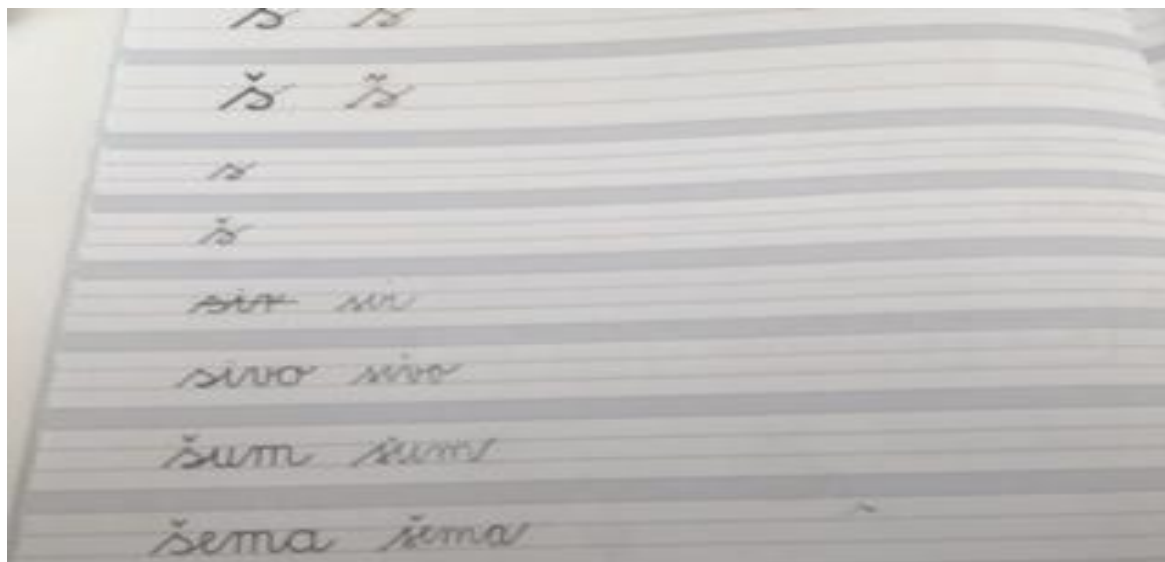 s s
š š
s
š
sir sir
sivo sivo
šum šum
šema šema